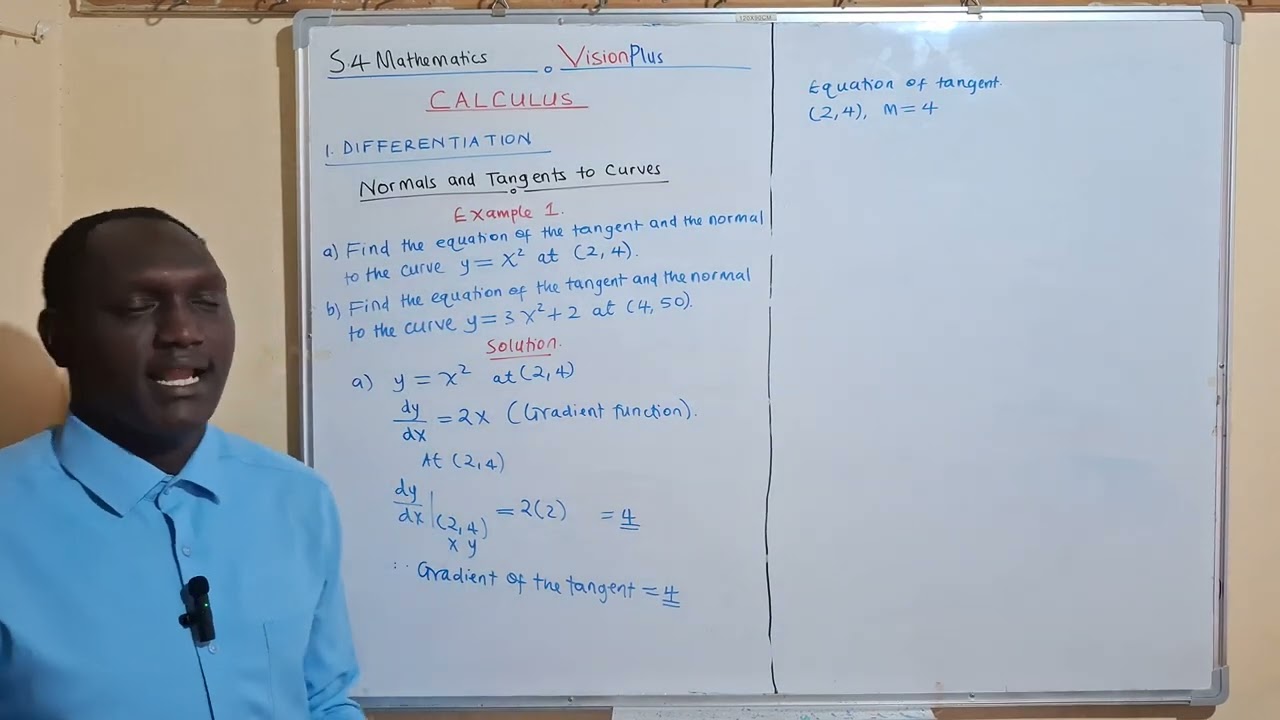 120X90CM
S.4 Mathematics VisionPlus
CALCULUS
1. DIFFERENTIATION
Normals and Tangents to Curves
Example 1.
a) Find the equation of the tangent and the normal
to the curve y = x² at (2, 4).
b) Find the equation of the tangent and the normal
to the curve y = 3x² + 2 at (4, 50).
Solution.
a) y = x² at (2, 4)
dy/dx = 2x (Gradient function).
At (2, 4)
dy/dx |(2, 4) = 2(2) = 4
x y
∴ Gradient of the tangent = 4
Equation of tangent.
(2, 4), M = 4